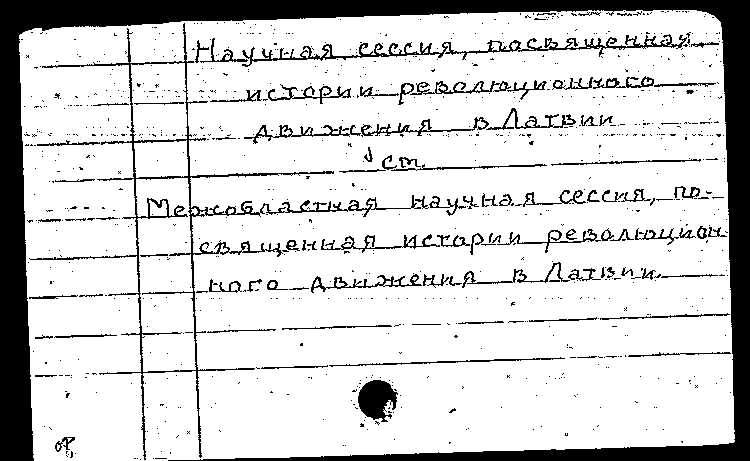 Научная сессия, посвященная
истории революционного
движения в Латвии
см.
Межобластная научная сессия, по-
священная истории революцион
ного движения в Латвии.